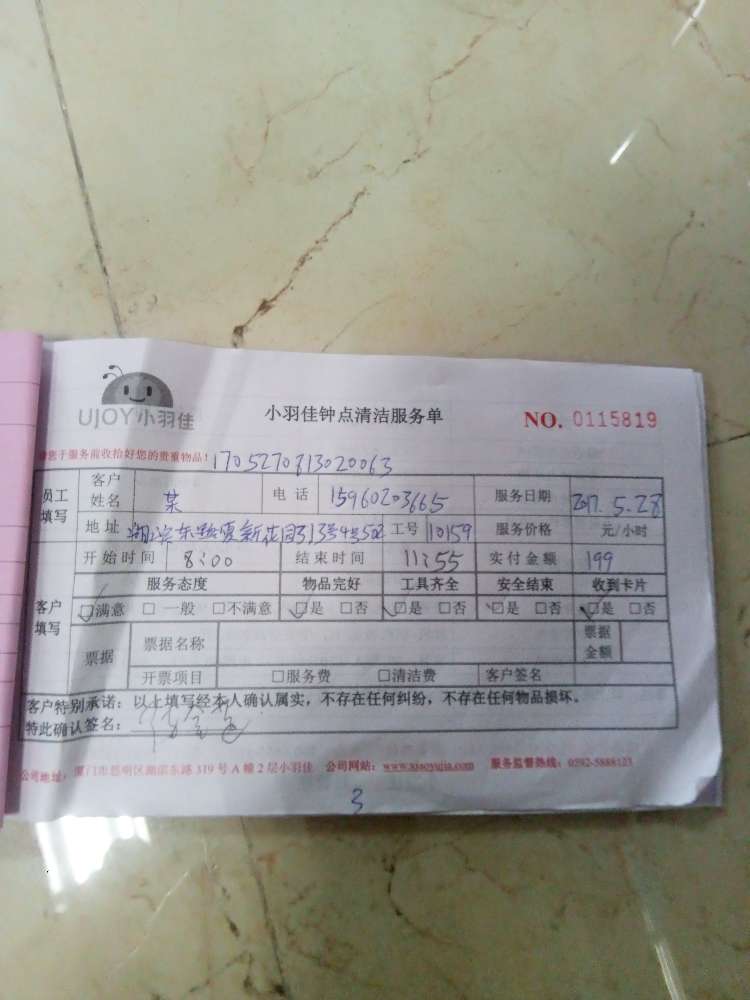 UJOY小羽佳
小羽佳钟点清洁服务单
NO. 0115819
请您于服务前收拾好您的贵重物品! 1705270813020063
员工填写 客户姓名 某 电话 15960203665 服务日期 2017.5.28
地址 湖滨东路爱新花园313号4号502 工号 10159 服务价格 元/小时
开始时间 8:00 结束时间 11:55 实付金额 199
客户填写 服务态度 物品完好 工具齐全 安全结束 收到卡片
☑满意 □一般 □不满意 ☑是 □否 ☑是 □否 ☑是 □否 ☑是 □否
票据 票据名称 票据金额
开票项目 □服务费 □清洁费 客户签名
客户特别承诺:以上填写经本人确认属实,不存在任何纠纷,不存在任何物品损坏。
特此确认签名:
公司地址:厦门市思明区湖滨东路319号A幢2层小羽佳 公司网站:www.xiaoyujia.com 服务监督热线:0592-5888123
3